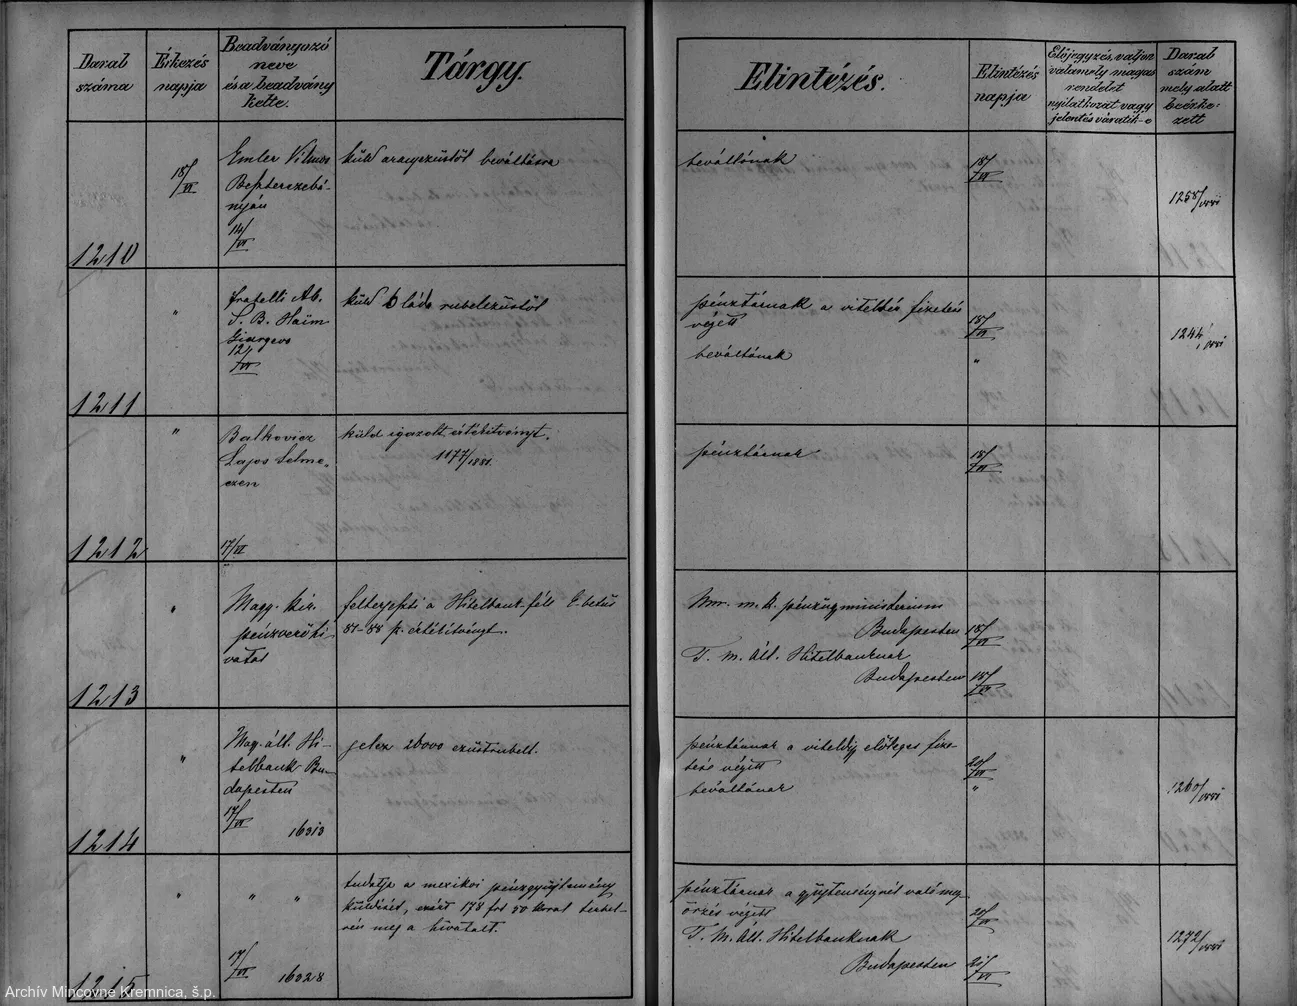 Darab száma
Érkezés napja
Beadványozó
neve
és a beadvány
kelte.
Tárgy.
Elintézés.
Elintézés
napja
Előjegyzés, valjon
valamely magas
rendelet
nyilatkozat vagy
jelentés váratik-e
Darab
szám
mely alatt
beérke-
zett
1210
18/VI
Emler Vilmos
Beszterczebá-
nyán
14/VI
küld aranyezüstöt beváltásra
beváltónak
18/VI
1258/1881
1211
"
Fratelli Ab.
S. B. Haim
Giurgevo
12/VI
küld 6 láda rubelezüstöt
pénztárnak a vitelbér fizetés
végett
18/VI
beváltónak
"
1244/1881
1212
"
Balkovicz
Lajos Selme-
czen
17/VI
küld igazolt értesitványt.
1177/1881.
pénztárnak
18/VI
1213
"
Magy. kir.
pénzverő hi-
vatal
felterjeszti a Hitelbank-féle
81-88 p. értesitványt.
Nm. m. k. pénzügyministerium
Budapesten
18/VI
T. m. ált. Hitelbanknak
Budapesten
18/VI
1214
"
Mag. ált. Hi-
telbank Bu-
dapesten
17/VI
16313
jelez 26000 ezüstrubelt.
pénztárnak a viteldíj előleges fize-
tése végett
20/VI
beváltónak
"
1260/1881
1215
"
"
"
17/VI
16328
tudatja a mexikoi pénzgyűjtemény
küldését, ezért 178 frt 50 krral terhel-
vén meg a hivatalt.
pénztárnak a gyűjteménynél való meg-
őrzés végett
20/VI
T. M. Ált. Hitelbanknak
Budapesten
21/VI
1272/1881
Archív Mincovne Kremnica, š.p.